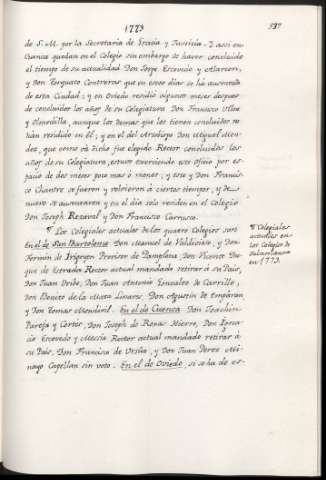 1773
de S. M. por la Secretaria de Gracia y Justicia. Y assi en
Cuenca quedan en el Colegio sin embargo de haver concluido
el tiempo de su actualidad Don Jorge Escovedo y Alarcon,
y Don Torquato Contreras que en estos dias se ha ausentado
de esta Ciudad; y en Oviedo residió algunos meses despues
de concluidos los años de su Colegiatura Don Francisco Ulloa
y Olmedilla, aunque los demas que los tienen concluidos no
han residido en él; y en el del Arzobispo Don Miguel Men-
dez, que como va dicho fue elegido Rector concluidos los
años de su Colegiatura, estuvo exerciendo este oficio por es-
pacio de dos meses poco mas ó menos; y este y Don Francis-
co Chantre se fueron y volvieron á ciertos tiempos, y de
nuevo se ausentaron y en el dia solo residen en el Colegio
Don Joseph Rezaval y Don Francisco Carrasco.
¶ Los Colegiales actuales de los quatro Colegios son:
En el de San Bartolomé Don Manuel de Valdivieso, y Don
Fermin de Irigoyen Provisor de Pamplona, Don Vicente Du-
que de Estrada Rector actual mandado retirar á su Pais,
Don Juan Uribe, Don Juan Antonio Gonzalez de Carrillo,
Don Benito de la Mata Linares, Don Agustin de Emparan
y Don Tomas Mendivil. En el de Cuenca Don Joachin
Pareja y Cortés, Don Joseph de Rojas Mierre, Don Igna-
cio Escovedo y Mexia Rector actual mandado retirar á
su Pais, Don Francisco de Ursúa, y Don Juan Perez Mi-
nayo Capellan sin voto. En el de Oviedo, si se ha de es-
¶ Colegiales
actuales en
los Colegios de
Salamanca
en 1773.